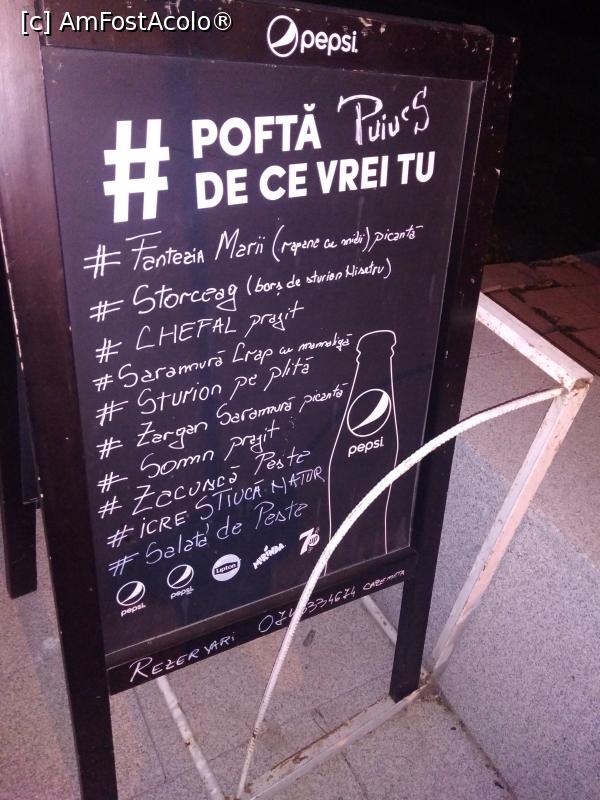 [c] AmFostAcolo®
pepsi.
# POFTĂ Puiu's
DE CE VREI TU
# Fantezia Marii (rapane cu midii) picantă
# Storceag (borș de sturion Nisetru)
# CHEFAL prajit
# Saramură Crap cu mamaligă
# Sturion pe plită
# Zargan Saramură picantă
# Somn prajit
# Zacuscă Peste
# iCRE ȘTIUCĂ NATUR
# Salată de Peste
pepsi.
pepsi. pepsi. Lipton MIRINDA 7up
REZERVARI